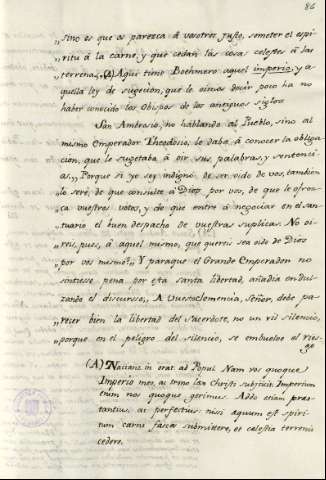 86
„sino es que os parezca á vosotros justo, someter el espi-
„ritu á la carne, y que cedan las cosas celestes á las
„terrenas„(A) Aqui tiene Boehmero aquel imperio, y a
quella ley de sugecion, que le oimos decir poco ha no
haber conocido los Obispos de los antiguos siglos
San Ambrosio, no hablando al Pueblo, sino al
mismo Emperador Theodosio, le daba á conocer la obliga
cion, que le sugetaba á oir sus palabras, y sentenci
as. „Porque si yo soy indigno de ser oido de vos, tambien
„lo seré, de que consulte á Dios por vos, de que le ofrez
„ca vuestros votos, y de que entre á negociar en el san-
„tuario el buen despacho de vuestras suplicas. No oi-
„reis, pues, á aquel mismo, que quereis sea oido de Dios
„por vos mismo?„ Y paraque el Grande Emperador no
sintiese pena por esta santa libertad, añadia endul-
zando el discurso, „A Vuestra clemencia, Señor, debe pa-
„recer bien la libertad del Sacerdote, no un vil silencio,
„porque en el peligro del silencio, se embuelve al ries-
go
(A) Nacianc in orat. ad Popul. Nam vos quoque
Imperio meo, ac trono lex Christi subjicit. Imperium
enim nos quoque gerimus. Addo etiam præs-
tantius, ac perfectius: nisi æquum est spiri-
tum carni fasces submittere, et celestia terrenis
cedere.